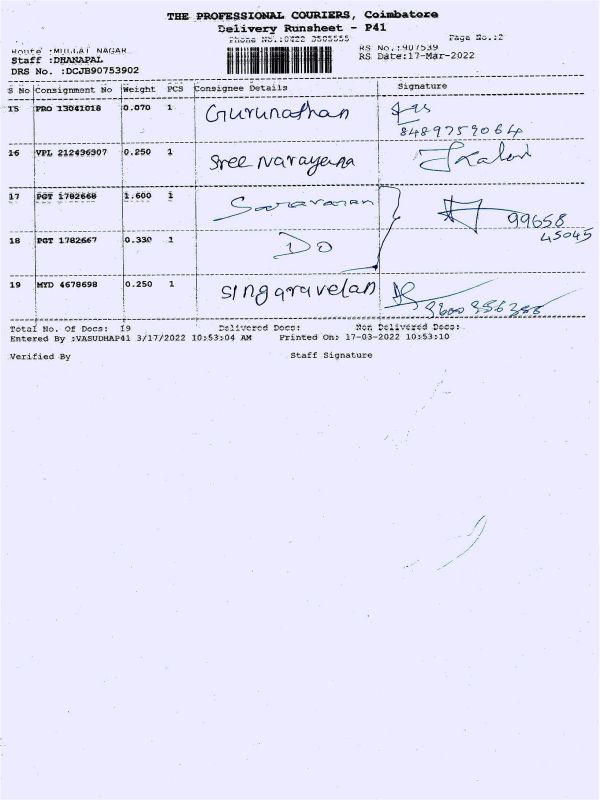 THE PROFESSIONAL COURIERS, Coimbatore
Delivery Runsheet - P41
Page No.:2
Route :MULLAI NAGAR
RS No.:907539
Staff :DHANAPAL
RS Date:17-Mar-2022
DRS No. :DCJB90753902
S No Consignment No Weight PCS Consignee Details Signature
15 PRO 13041018 0.070 1 Gurunathan
8489759064
16 VPL 212496907 0.250 1 Sree Narayana
17 PGT 1782668 1.600 1 Saravanan
99658
45045
18 PGT 1782667 0.330 1 Do
19 MYD 4678698 0.250 1 Singaravelan
Total No. Of Docs: 19 Delivered Docs: Non Delivered Docs:
Entered By :VASUDHAP41 3/17/2022 10:53:04 AM Printed On: 17-03-2022 10:53:10
Verified By Staff Signature